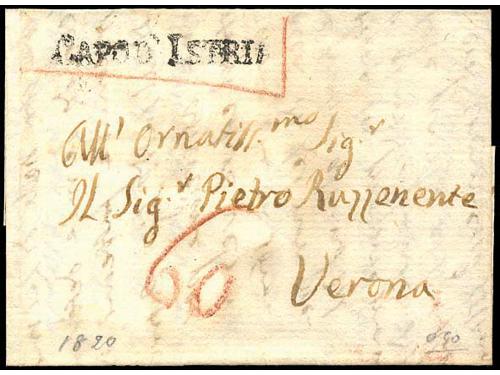 CAPO D' ISTRIA
All' Ornatiss.mo Sig.r
Il Sig.r Pietro Ruzzenente
60
Verona
1820